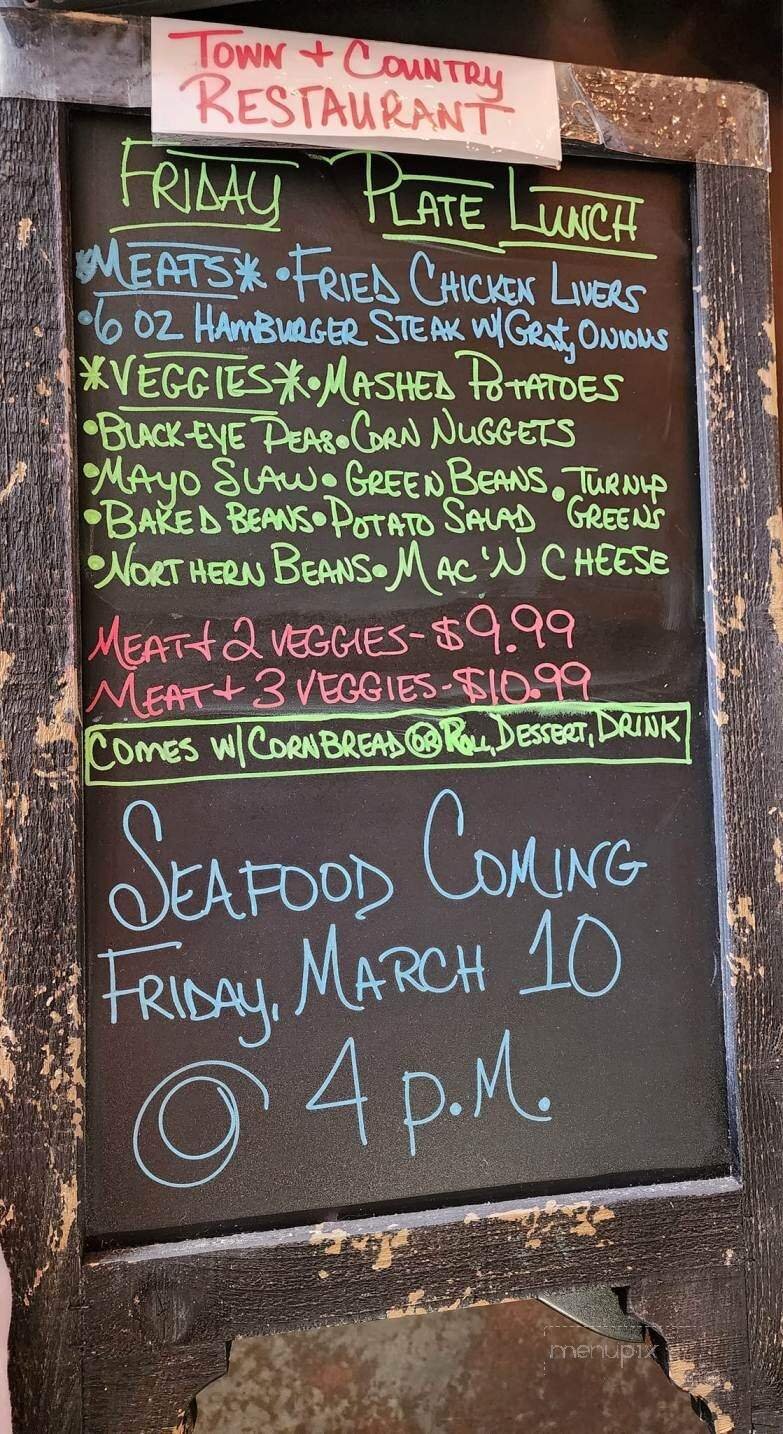 TOWN + COUNTRY
RESTAURANT
FRIDAY PLATE LUNCH
*MEATS* • FRIED CHICKEN LIVERS
• 6 OZ HAMBURGER STEAK W/ GRAVY, ONIONS
*VEGGIES* • MASHED POTATOES
• BLACK-EYE PEAS • CORN NUGGETS
• MAYO SLAW • GREEN BEANS • TURNIP
• BAKED BEANS • POTATO SALAD GREENS
• NORTHERN BEANS • MAC 'N CHEESE
MEAT + 2 VEGGIES - $9.99
MEAT + 3 VEGGIES - $10.99
COMES W/ CORNBREAD OR ROLL, DESSERT, DRINK
SEAFOOD COMING
FRIDAY, MARCH 10
@ 4 P.M.
menupix